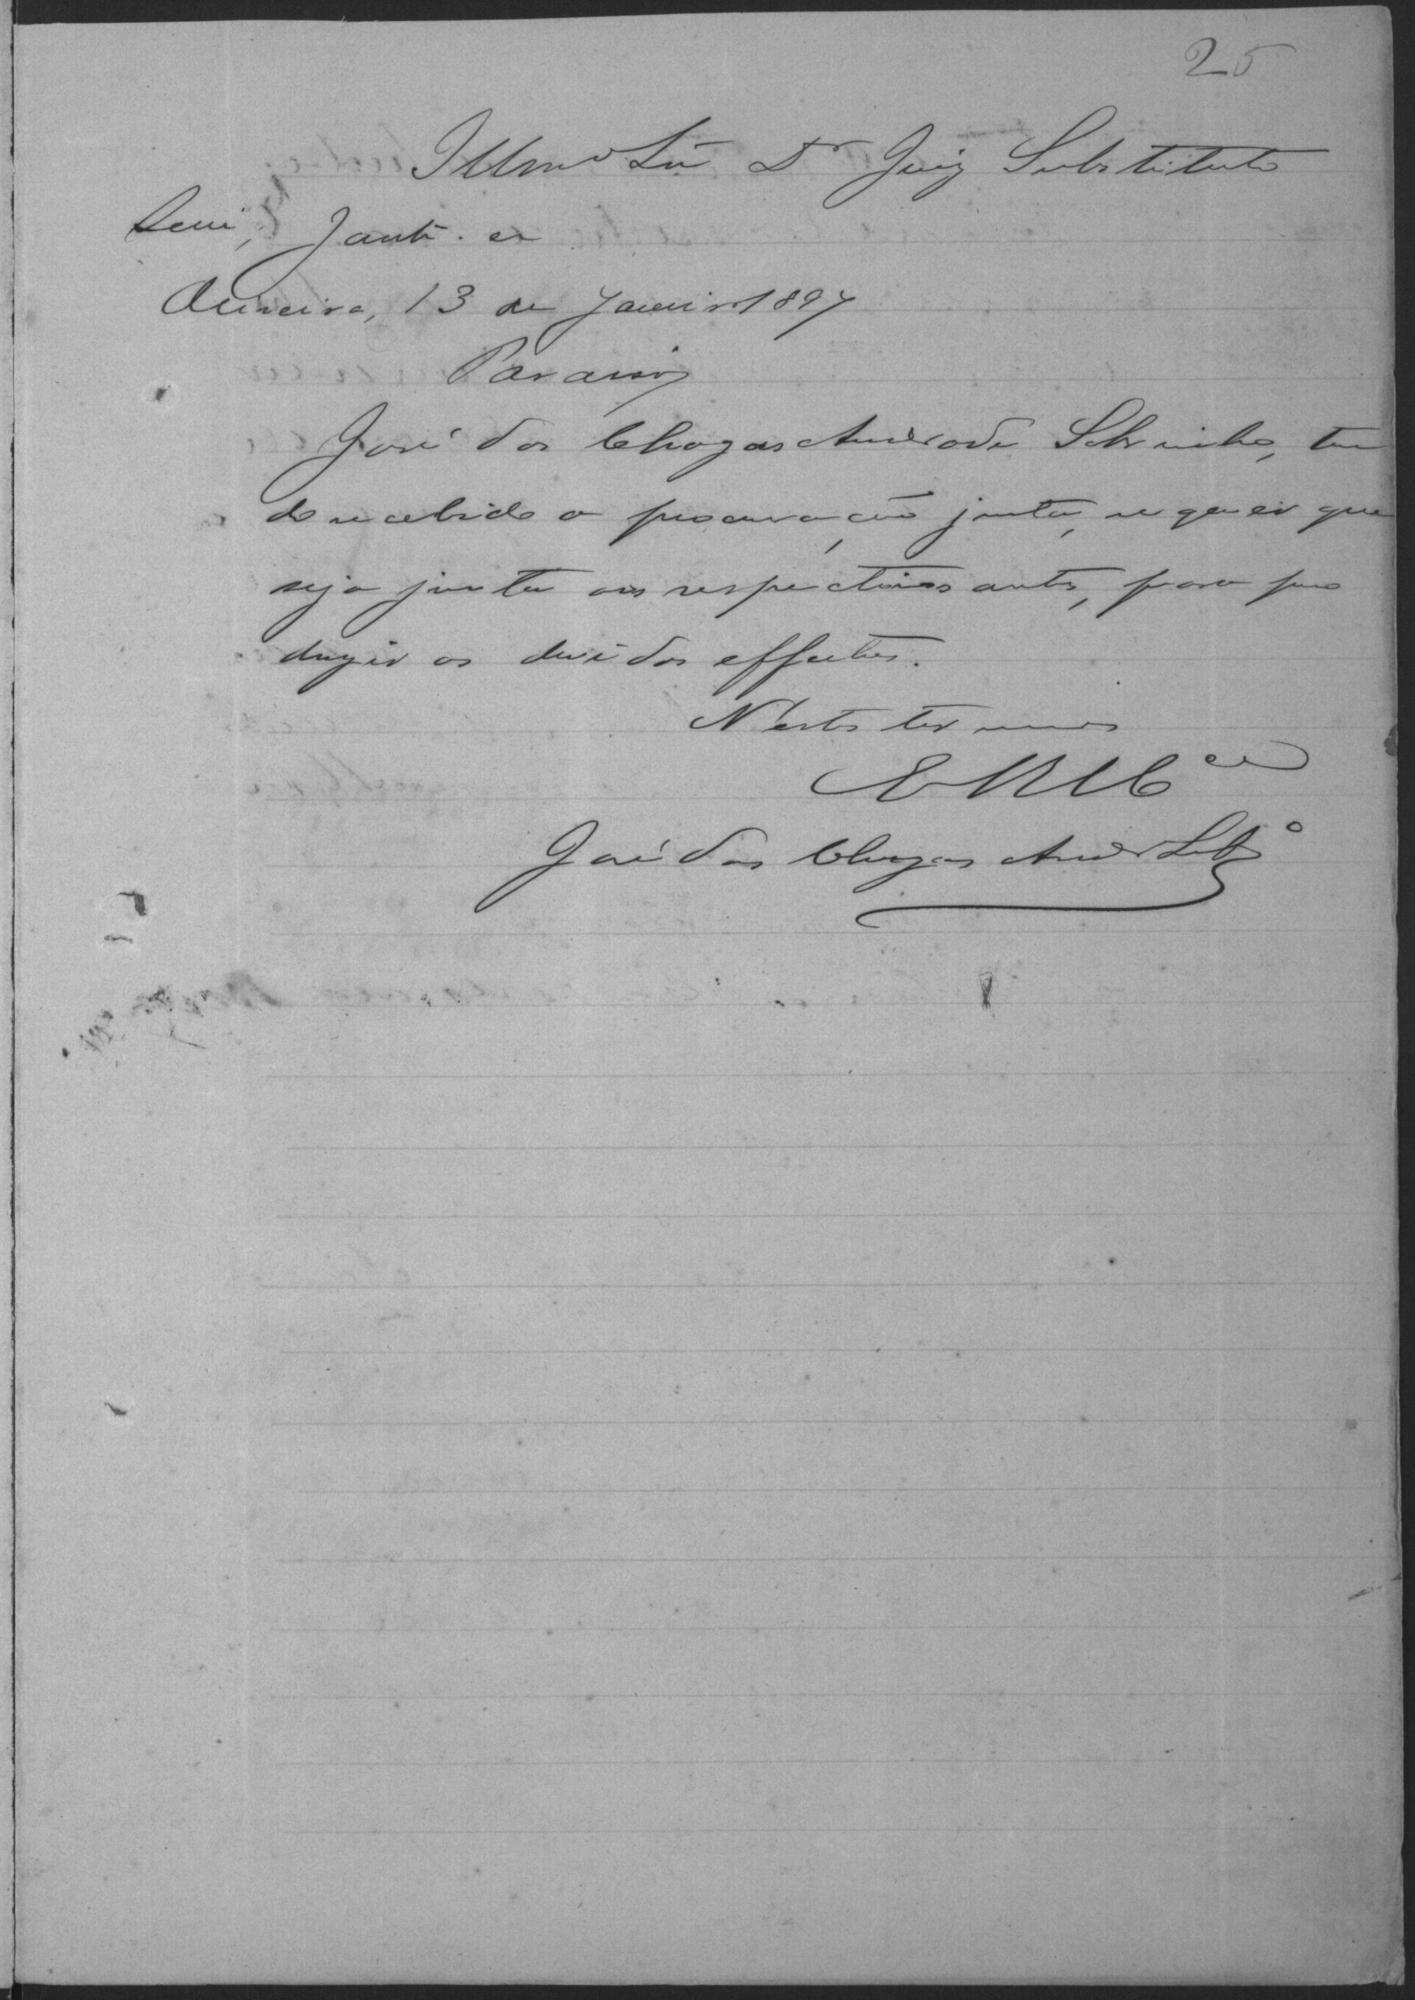 25
Illmo Snr Dr Juiz Substituto
Sim, Junte-se
Oliveira, 13 de Janeiro 1897
Paraiso
José das Chagas Andrade Sobrinho, ten
do recebido a procuração junta, requer que
seja junta aos respectivos autos, para pro
duzir os devidos effeitos.
N'estes termos
E R Mce
José das Chagas Andre Sobo